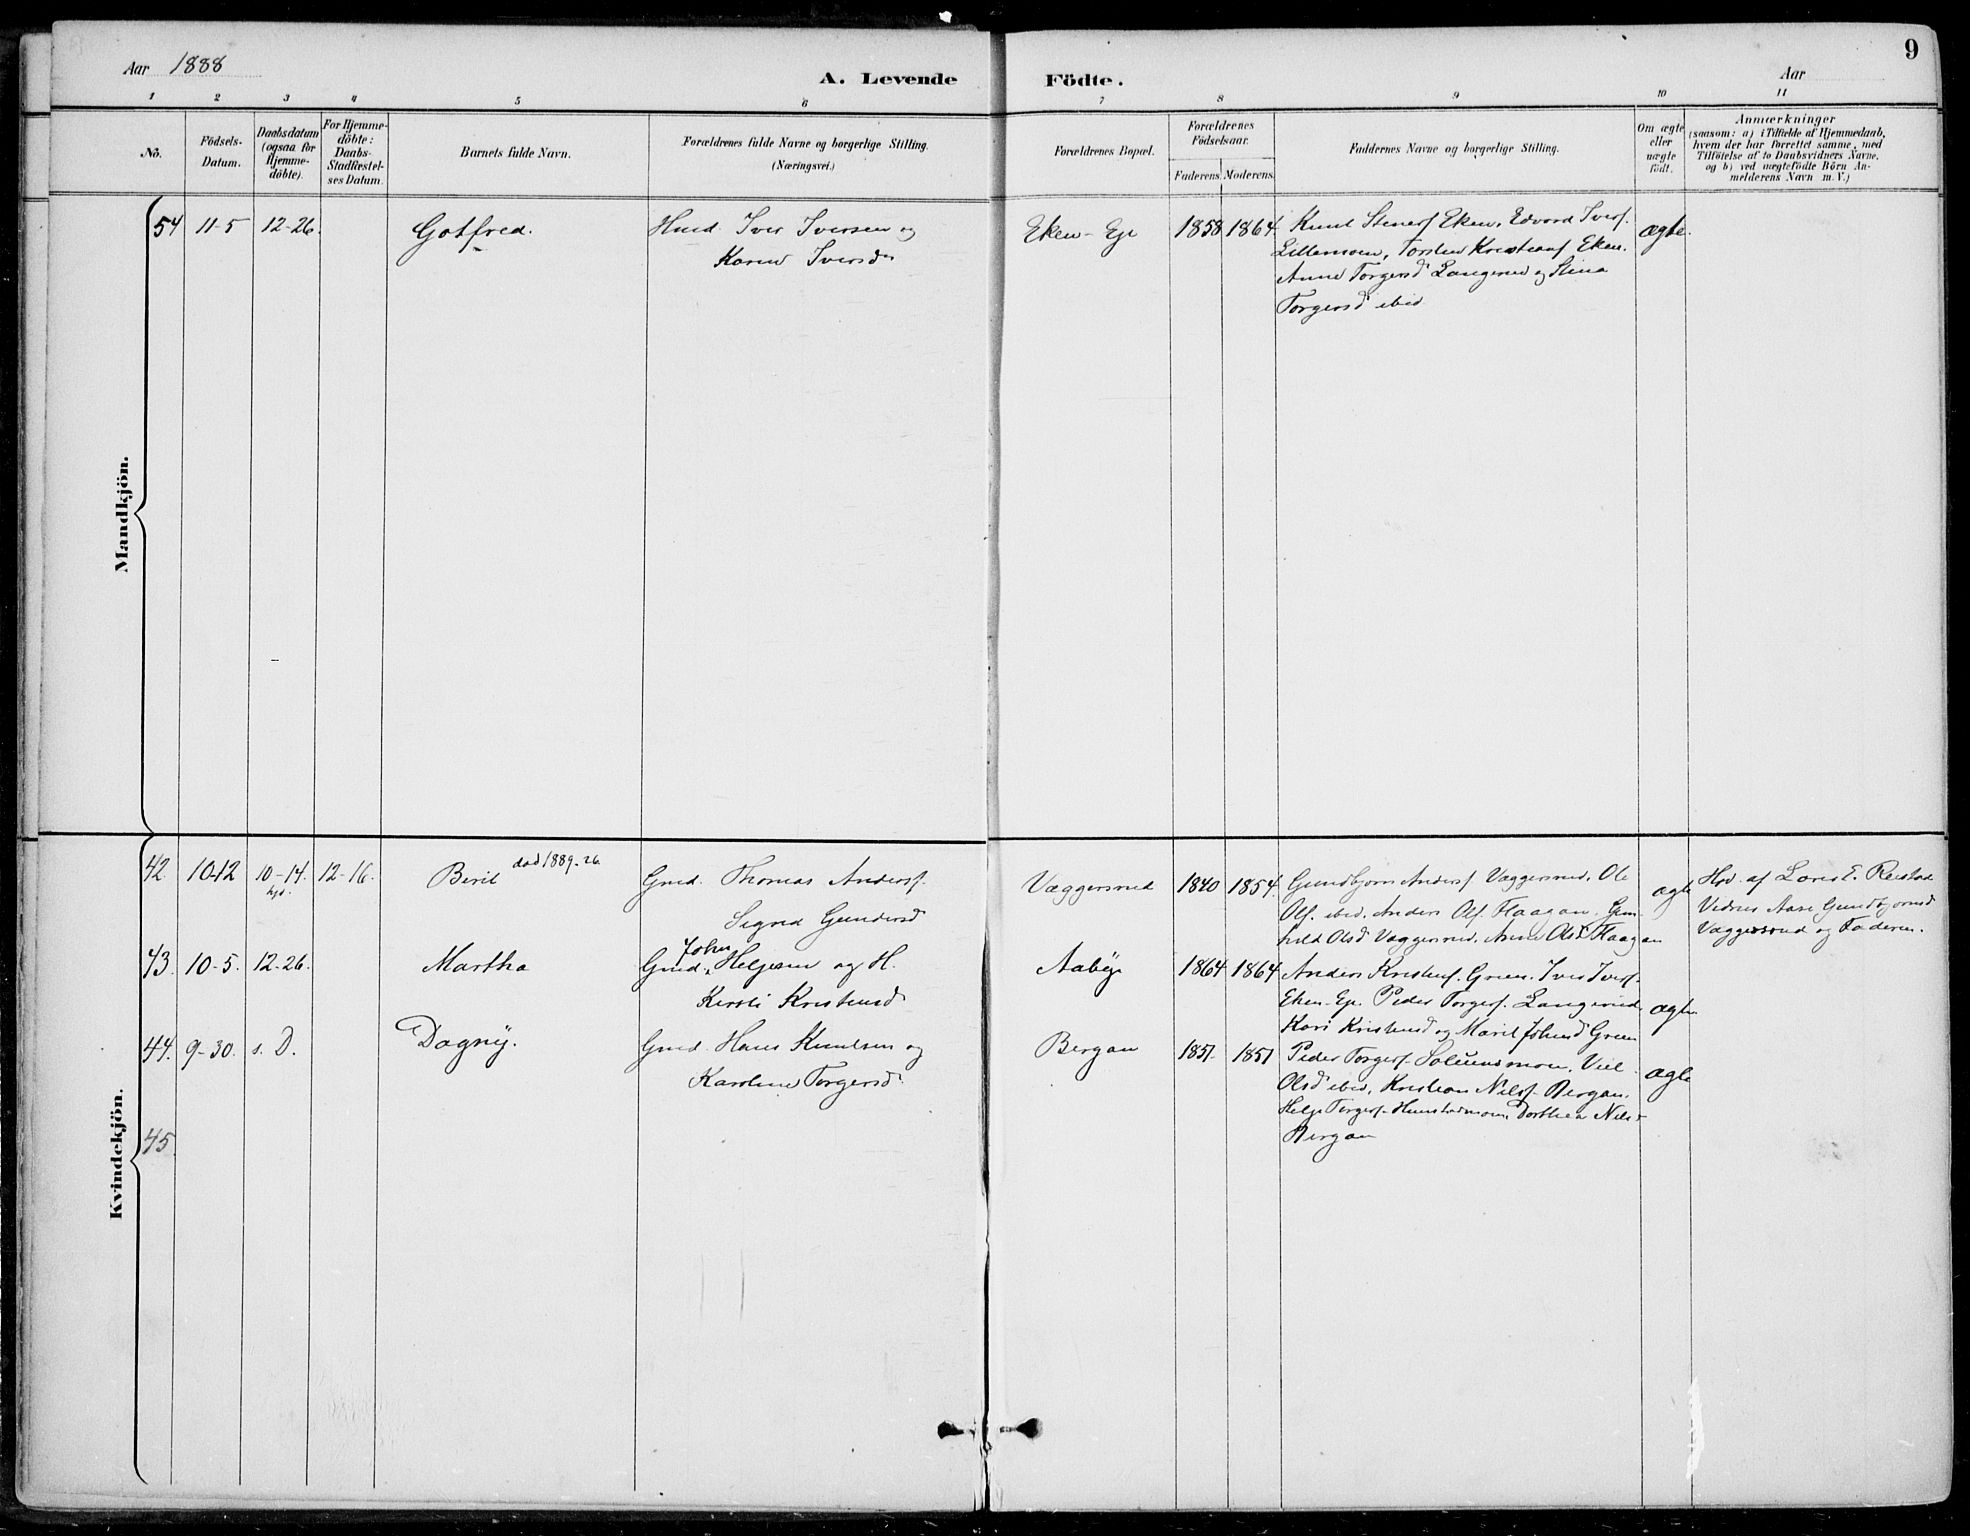 Aar 1888
A. Levende Födte.
Aar
9
1 2 3 4 5 6 7 8 9 10 11
No.
Födsels-
Datum.
Daabsdatum
(ogsaa for
Hjemme-
döbte).
For Hjemme-
döbte:
Daabs-
Stadfestel-
ses Datum.
Barnets fulde Navn.
Forældrenes fulde Navne og borgerlige Stilling.
(Næringsvei.)
Forældrenes Bopæl.
Forældrenes
Födselsaar.
Faderens. Moderens.
Faddernes Navne og borgerlige Stilling.
Om ægte
eller
uægte
födt.
Anmærkninger
(saasom: a) i Tilfælde af Hjemmedaab,
hvem der har forrettet samme, med
Tilföielse af to Daabsvidners Navne,
og b) ved uægtefödte Börn An-
melderens Navn m. V.)
Mandkjön.
54 11-5 12-26. Gotfred.
Iver Iversen og
Karen Iversd
Eken-Eje 1858 1864.
Knut Stenersf Eken, Edvard Iversf.
Lillemoen, Torsten Kristiansf Eken.
Anne Torgersd Langerud og Stina
Torgersd ibid
ægte.
Kvindekjön.
42 10-12 10-14. hjd. 12-16. Beril død 1889-26
Gmd. Thomas Andersf.
Sigrid Gundersd
Væggersrud 1840 1854.
Gundbjørn Andersf Væggersrud, Ole
Olf. ibid. Anders Olf. Haagan. Gun-
hild Olsd Væggersrud, Anne Olsd Haagan
ægte
Hjd. af Lars E. Reistad
Vidner Aase Gundbjørnsd
Væggersrud og Faderen.
43. 10-5. 12-26. Martha
John
Gmd. Helgesen og H.
Kirsti Kristensd
Aabye 1864 1864
Anders Kristensf. Green. Iver Iversf.
Eken-Eje. Peder Torgersf. Langerud,
Kari Kristensd og Marit Johnsd Green
ægte
44. 9-30. s. D. Dagny.
Gmd. Hans Knudsen og
Karoline Torgersd
Bergan 1851 1851
Peder Torgersf. Solumsmoen,
Olsd ibid, Kristian Nilsf. Bergan,
Helge Torgersf. Dorthea Nilsd
Bergan
ægte
45